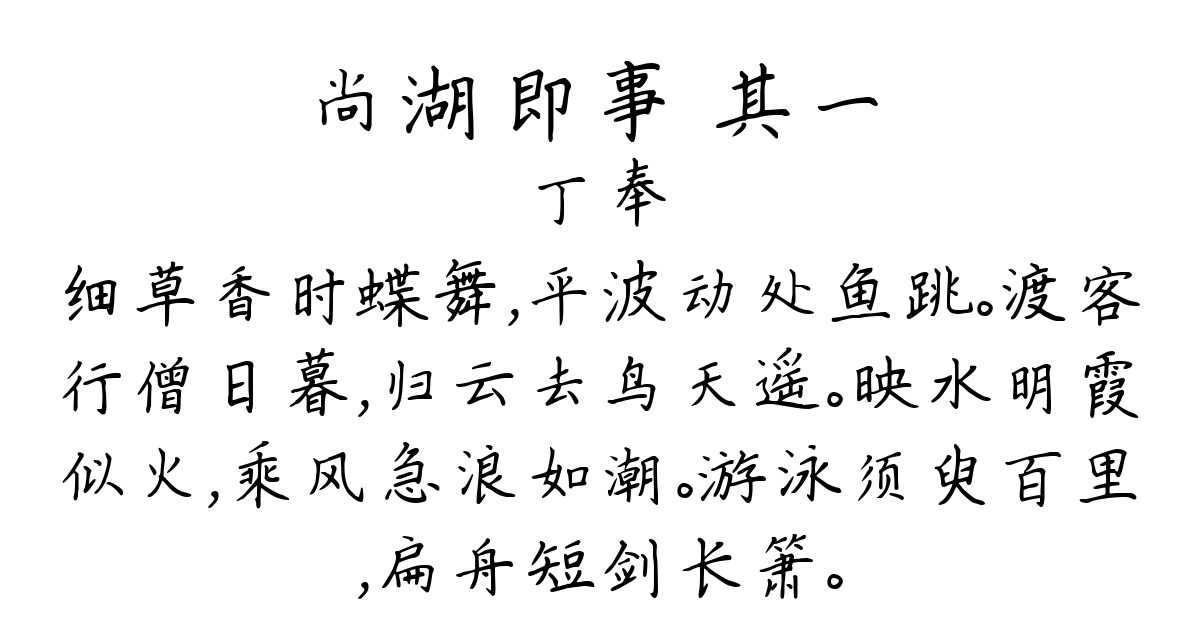 尚湖即事 其一
丁奉
细草香时蝶舞,平波动处鱼跳。渡客
行僧日暮,归云去鸟天遥。映水明霞
似火,乘风急浪如潮。游泳须臾百里
,扁舟短剑长箫。